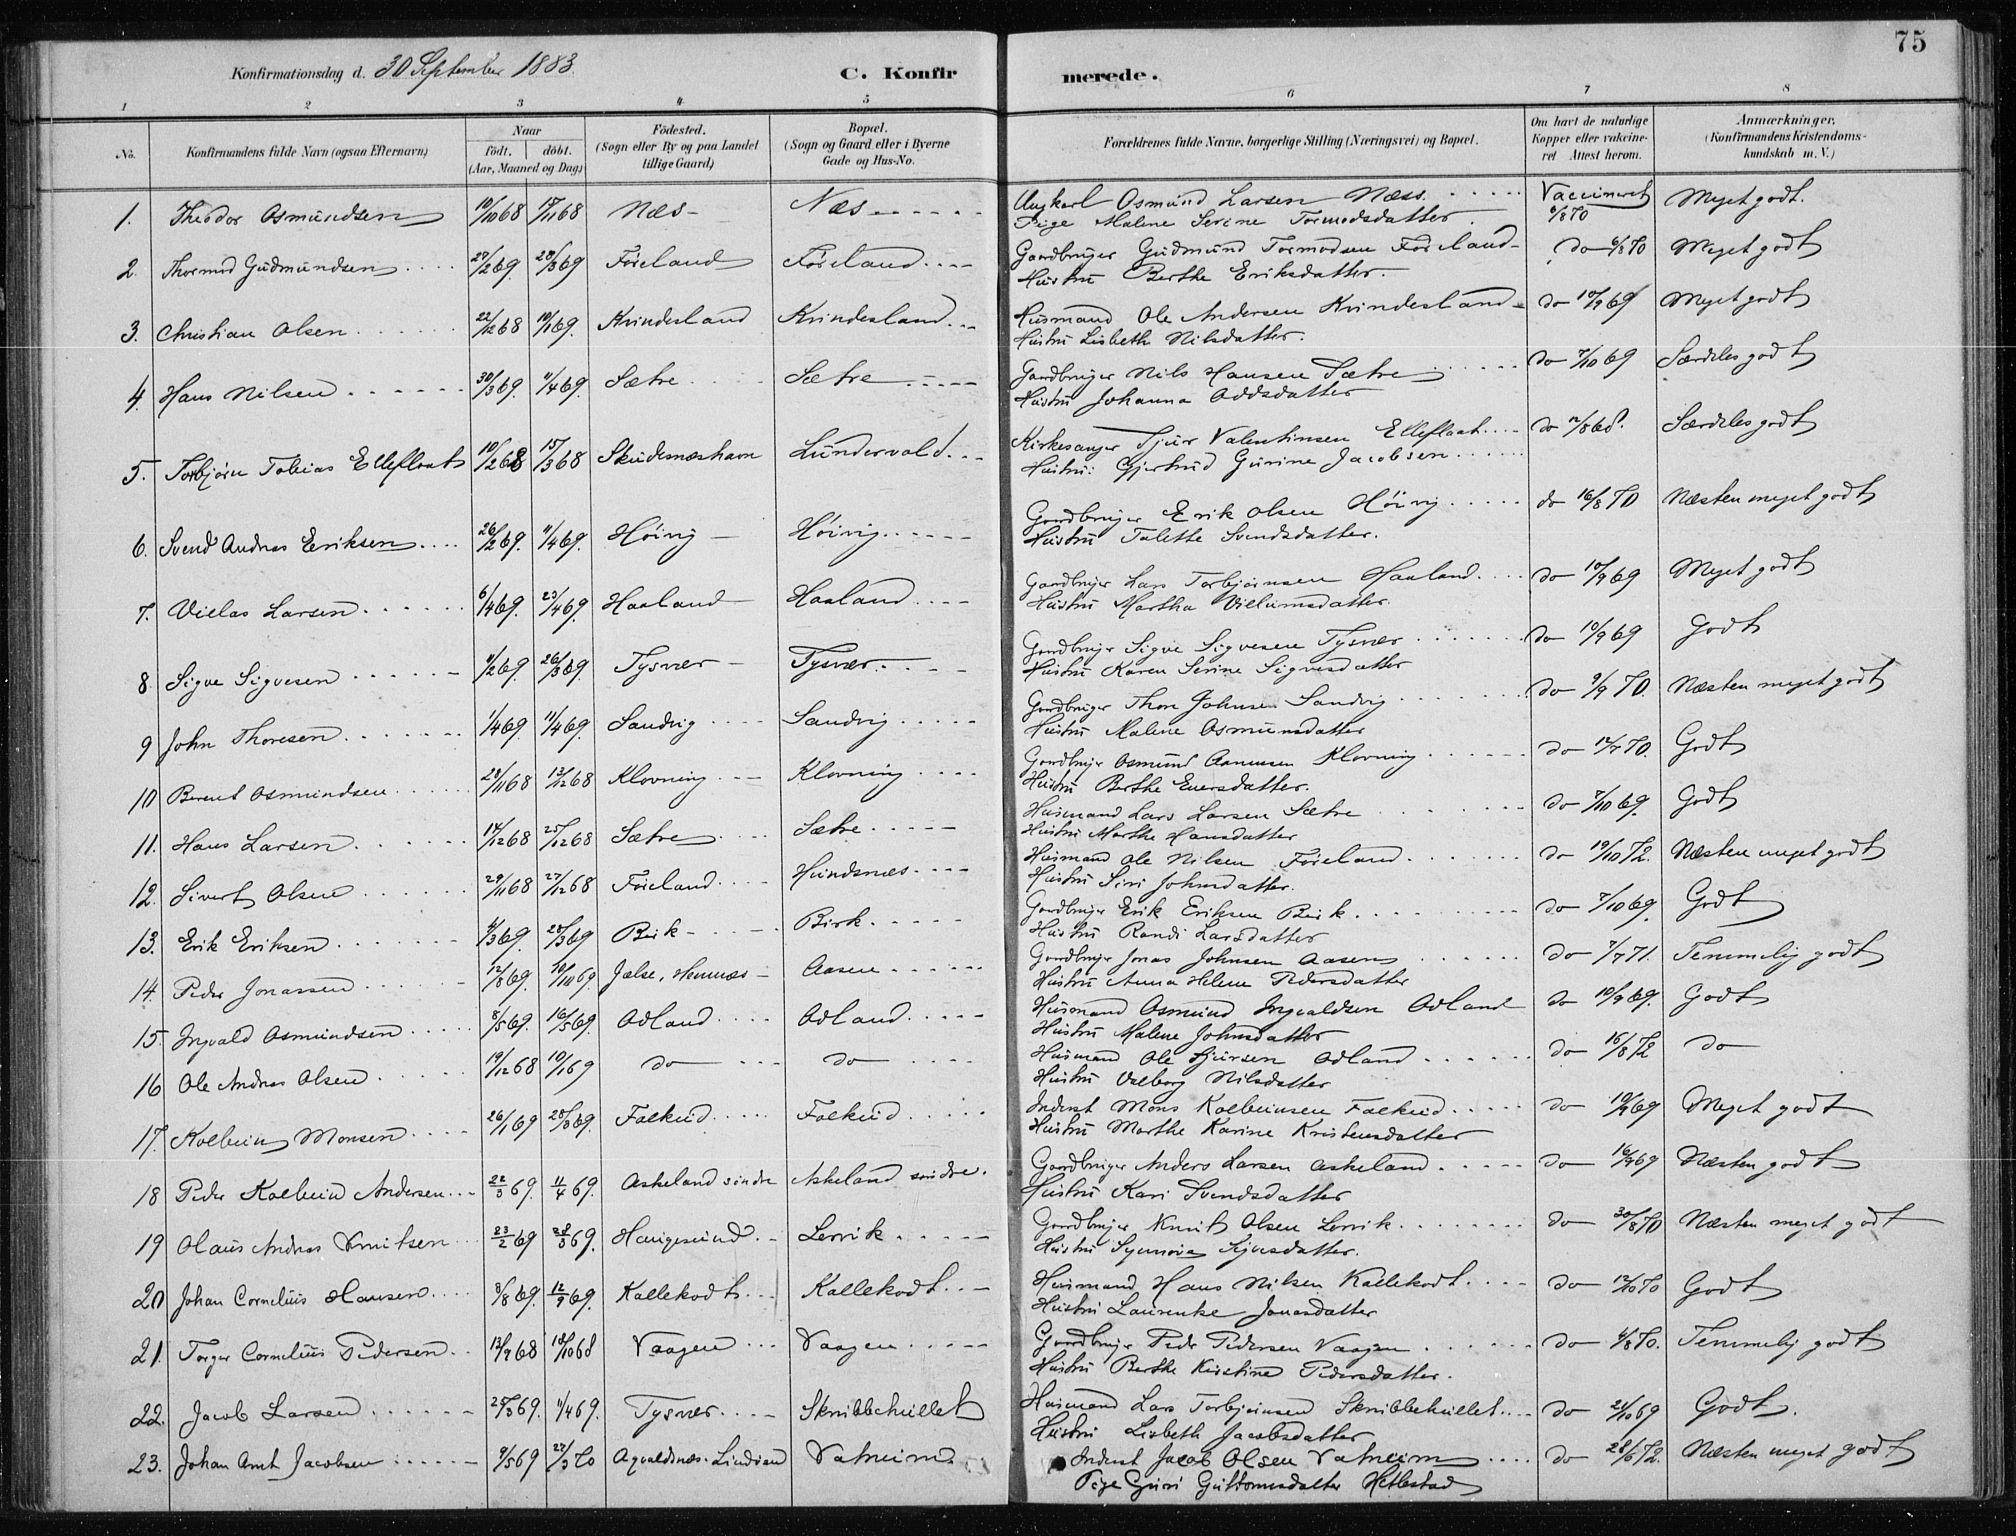 75
Konfirmationsdag d. 30 September 1883.
C. Konfirmerede.
1 2 3 4 5 6 7 8
No.
Konfirmandens fulde Navn (ogsaa Efternavn)
Naar
födt. döbt.
(Aar, Maaned og Dag)
Födested.
(Sogn eller By og paa Landet
tillige Gaard)
Bopæl.
(Sogn og Gaard eller i Byerne
Gade og Hus-No.
Forældrenes fulde Navne, borgerlige Stilling (Næringsvei) og Bopæl.
Om havt de naturlige
Kopper eller vakcine-
ret Attest herom.
Anmærkninger.
(Konfirmandens Kristendoms-
kundskab m. V.)
1. Theodor Osmundsen 10/10 68 17/11 68 Næs Næs Ungkarl Osmund Larsen Næss Vaccineret 6/8 70 Meget godt.
Pige Malene Serine Tormodsdatter
2. Thormod Gudmundsen 27/2 69 28/3 69 Föreland Föreland Gaardbruger Gudmund Tormodsen Föreland do 6/8 70 Meget godt
Hustru Berthe Eriksdatter.
3. Christian Olsen 22/12 68 10/1 69. Kvindesland Kvindesland Husmand Ole Andersen Kvindesland do 10/9 69 Meget godt
Hustru Lisbeth Nilsdatter.
4. Hans Nilsen 30/3 69. 11/4 69. Sætre Sætre Gardbruger Nils Hansen Sætre do 7/10 69 Særdeles godt
Hustru Johanna Oddsdatter
5. Torbjørn Tobias Elleflaat 10/2 68 15/3 68 Skudesneshavn Lundervold Kirkesanger Sjur Valentinsen Elleflaat do 12/8 68. Særdeles godt
Hustru: Gjertrud Gurine Jacobsen
6. Svend Andreas Eriksen 26/2 69. 11/4 69. Höivig Höivig Gardbruger Erik Olsen Höivig do 16/8 70 Næsten meget godt
Hustru Talette Svendsdatter.
7. Villas Larsen 6/4 69. 23/4 69. Haaland Haaland Gardbruger Lars Torbjørnsen Haaland do 10/9 69 Meget godt
Hustru Martha Villumsdatter.
8. Sigve Sigvesen 4/2 69. 26/3 69. Tysvær Tysvær Gardbruger Sigve Sigvesen Tysvær do 10/9 69 Godt
Hustru Karen Serine Sigvesdatter
9 John Thoresen 1/4 69. 11/4 69. Sandvig Sandvig Gardbruger Thore Johnsen Sandvig do 9/9 70. Næsten meget godt
Hustru Malene Osmundsdatter
10 Berent Osmundsen 28/11 68 13/12 68 Klovning Klovning Gardbruger Osmund Aanensen Klovning do 12/7 70. Godt
Hustru Berthe Enersdatter.
11. Hans Larsen 14/12 68 25/12 68 Sætre Sætre Husmand Lars Larsen Sætre do 7/10 69. Godt
Hustru Marthe Hansdatter
12. Sivert Olsen 29/11 68 27/12 68 Föreland Hundsnæs Husmand Ole Nilsen Föreland do 19/10 72. Næsten meget godt
Hustru Siri Johnsdatter.
13. Erik Eriksen 4/3 69. 28/3 69 Birk Birk Gardbruger Erik Eriksen Birk do 7/10 69. Godt
Hustru Randi Larsdatter
14. Peder Jonassen 12/8 69. 10/10 69 Jælse, Hennæs Aasen Gardbruger Jonas Johnsen Aasen do 7/7 71. Temmelig godt
Hustru Anna Helene Pedersdatter
15 Ingvald Osmundsen 8/5 69. 16/5 69. Odland Odland Husmand Osmund Ingvaldsen Odland do 10/9 69. Godt
Hustru Malene Johnsdatter
16 Ole Andreas Olsen 19/12 68 10/1 69 do do Husmand Ole Sjursen Odland do 16/8 72 do
Hustru Valborg Nilsdatter
17. Kolbein Monsen 26/1 69 28/3 69. Falkeid Falkeid Inderst Mons Kolbeinsen Falkeid do 10/9 69 Meget godt
Hustru Marthe Karine Kristensdatter
18 Peder Kolbein Andersen 22/3 69. 11/4 69. Askeland sindre Askeland sindre. Gardbruger Anders Larsen Askeland do 16/9 69 Næsten godt
Hustru Kari Svendsdatter
19 Olaus Andreas Knutsen 23/2 69 28/3 69. Haugesund Lervik Gardbruger Knut Olsen Lervik do 30/8 70 Næsten meget godt
Hustru Synnøva Sjursdatter.
20 Johan Cornelius Hansen 3/8 69. 12/9 69. Kallekodt Kallekodt Husmand Hans Nilsen Kallekodt do 12/10 70 Godt
Hustru Laurentse Jonasdatter
21. Torger Cornelius Pedersen 13/9 68 18/10 68 Vaagen Vaagen Gardbruger Peder Pedersen Vaagen do 4/8 70. Temmelig godt
Hustru Berthe Kirstine Pedersdatter.
22. Jacob Larsen 25/3 69. 11/4 69. Tysvær Skribbehullet Husmand Lars Torbjørnsen Skribbehullet do 21/10 69 Godt.
Hustru Lisbeth Jacobsdatter
23. Johan Arnt Jacobsen 9/5 69 27/3 70 Avaldsnes. Vatneim Inderst Jacob Olsen Vatneim do 28/6 72. Næsten meget godt
Pige Guri Guttormsdatter Hetlestad